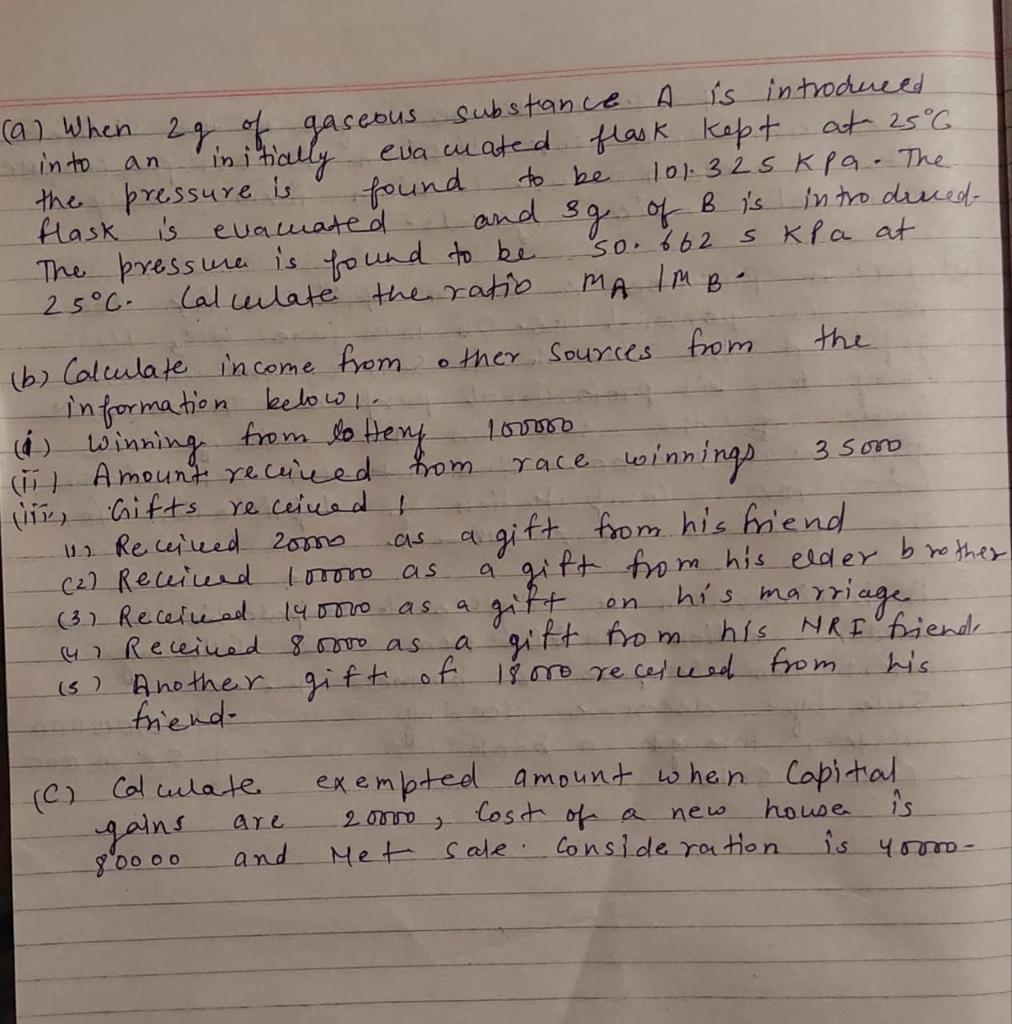 (a) When 2g of gaseous substance A is introduced
into an initially evacuated flask kept at 25°C
the pressure is found to be 101.325 Kpa. The
flask is evacuated and 3g of B is introduced.
The pressure is found to be 50.662 5 KPa at
25°C. Calculate the ratio MA / MB.
(b) Calculate income from other sources from the
information below:
(i) Winning from lottery 100000
(ii) Amount received from race winnings 35000
(iii) Gifts received :
(1) Received 20000 as a gift from his friend
(2) Received 100000 as a gift from his elder brother
(3) Received 140000 as a gift on his marriage
(4) Received 80000 as a gift from his NRI friend.
(5) Another gift of 18000 received from his
friend-
(C) Calculate exempted amount when Capital
gains are 20000, Cost of a new house is
80000 and Net Sale. Consideration is 40000-